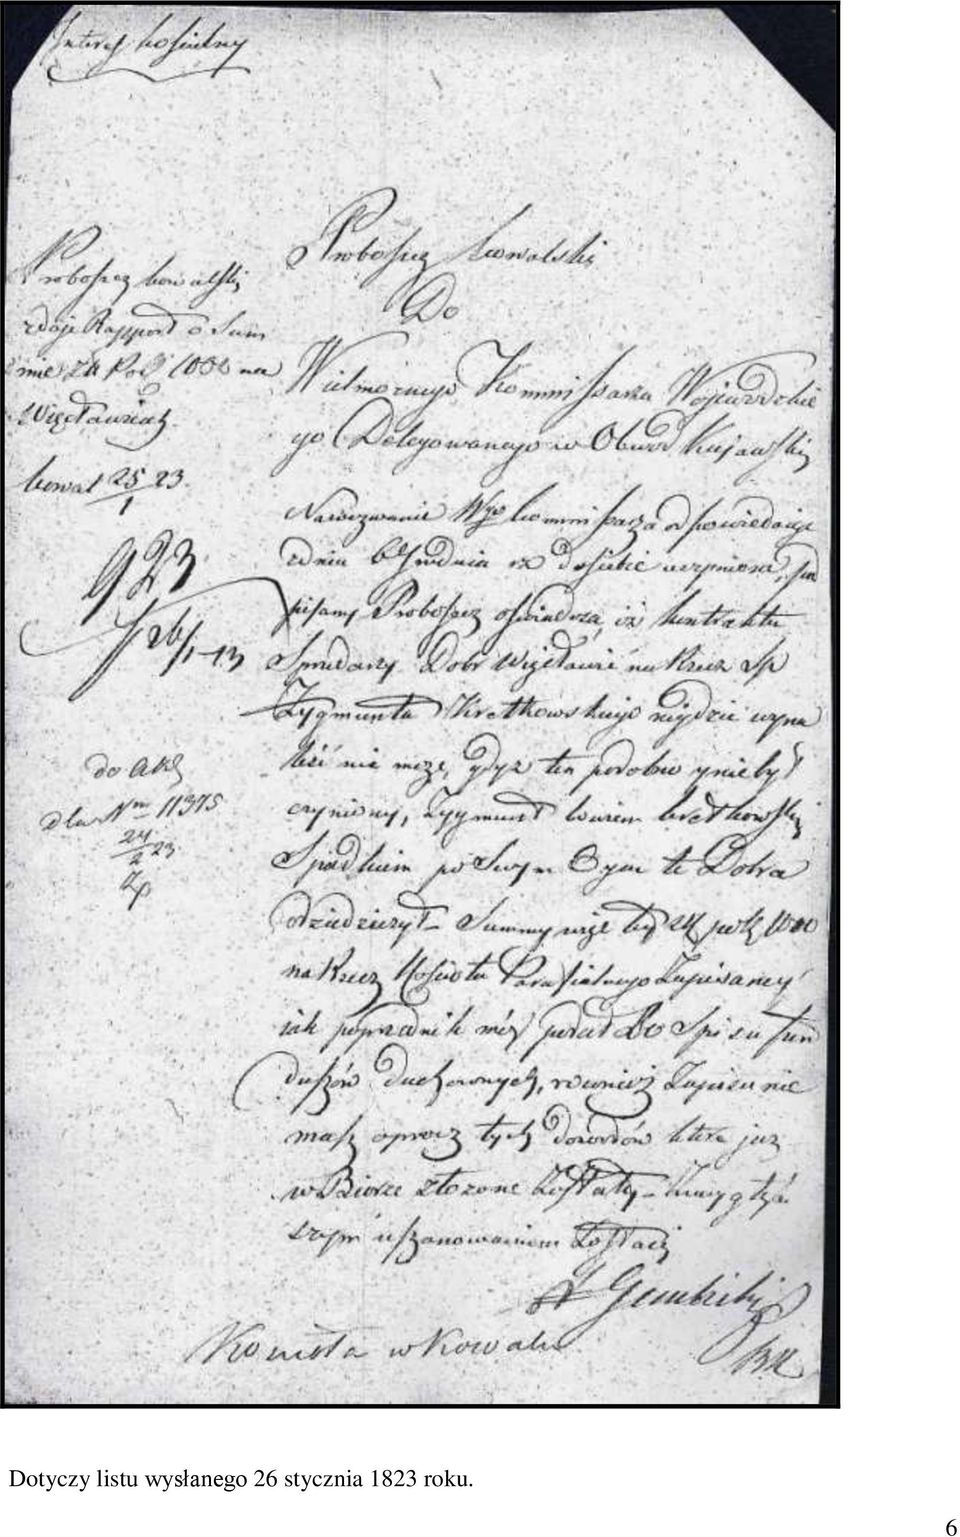 Interes kościelny
Proboszcz kowalski
zdaje Rapport o Sum
mie Zł Pol 1000 na
Więcławicach
kowal 25/1 23.
923
26/1 23
do Akt
dla Nru 11375
24/2 23
Zp
Proboszcz kowalski
Do
Wielmożnego Kommissarza Wojewodzkie
go Delegowanego w Obwod Kujawski
Na wezwanie Wgo kommissarza odpowiedając
z dnia 6 Grudnia do siebie uczynione, pod
pisany Proboszcz oswiadcza, iż kontraktu
Sprzedaży Dobr Więcławic na Rzecz Sp
Zygmunta Kretkowskiego nigdzie wyna
leść nie może, gdyż ten podobno y nie był
czyniony, Zygmunt bowiem kretkowski
Spadkiem po Swym Oycu te Dobra
odziedziczył – Summy tey Zł pol 1000
na Rzecz Kościoła Parafialnego Zapisaney
jak poprzednik móy podał Do Spisu fun
duszów duchownych, rownież Zapisu nie
masz oprocz tych dowodów które już
w Biorze złożone Zostały –
szym uszanowaniem Zostaię
Gembicki
Komęda w Kowalu
Dotyczy listu wysłanego 26 stycznia 1823 roku.
6